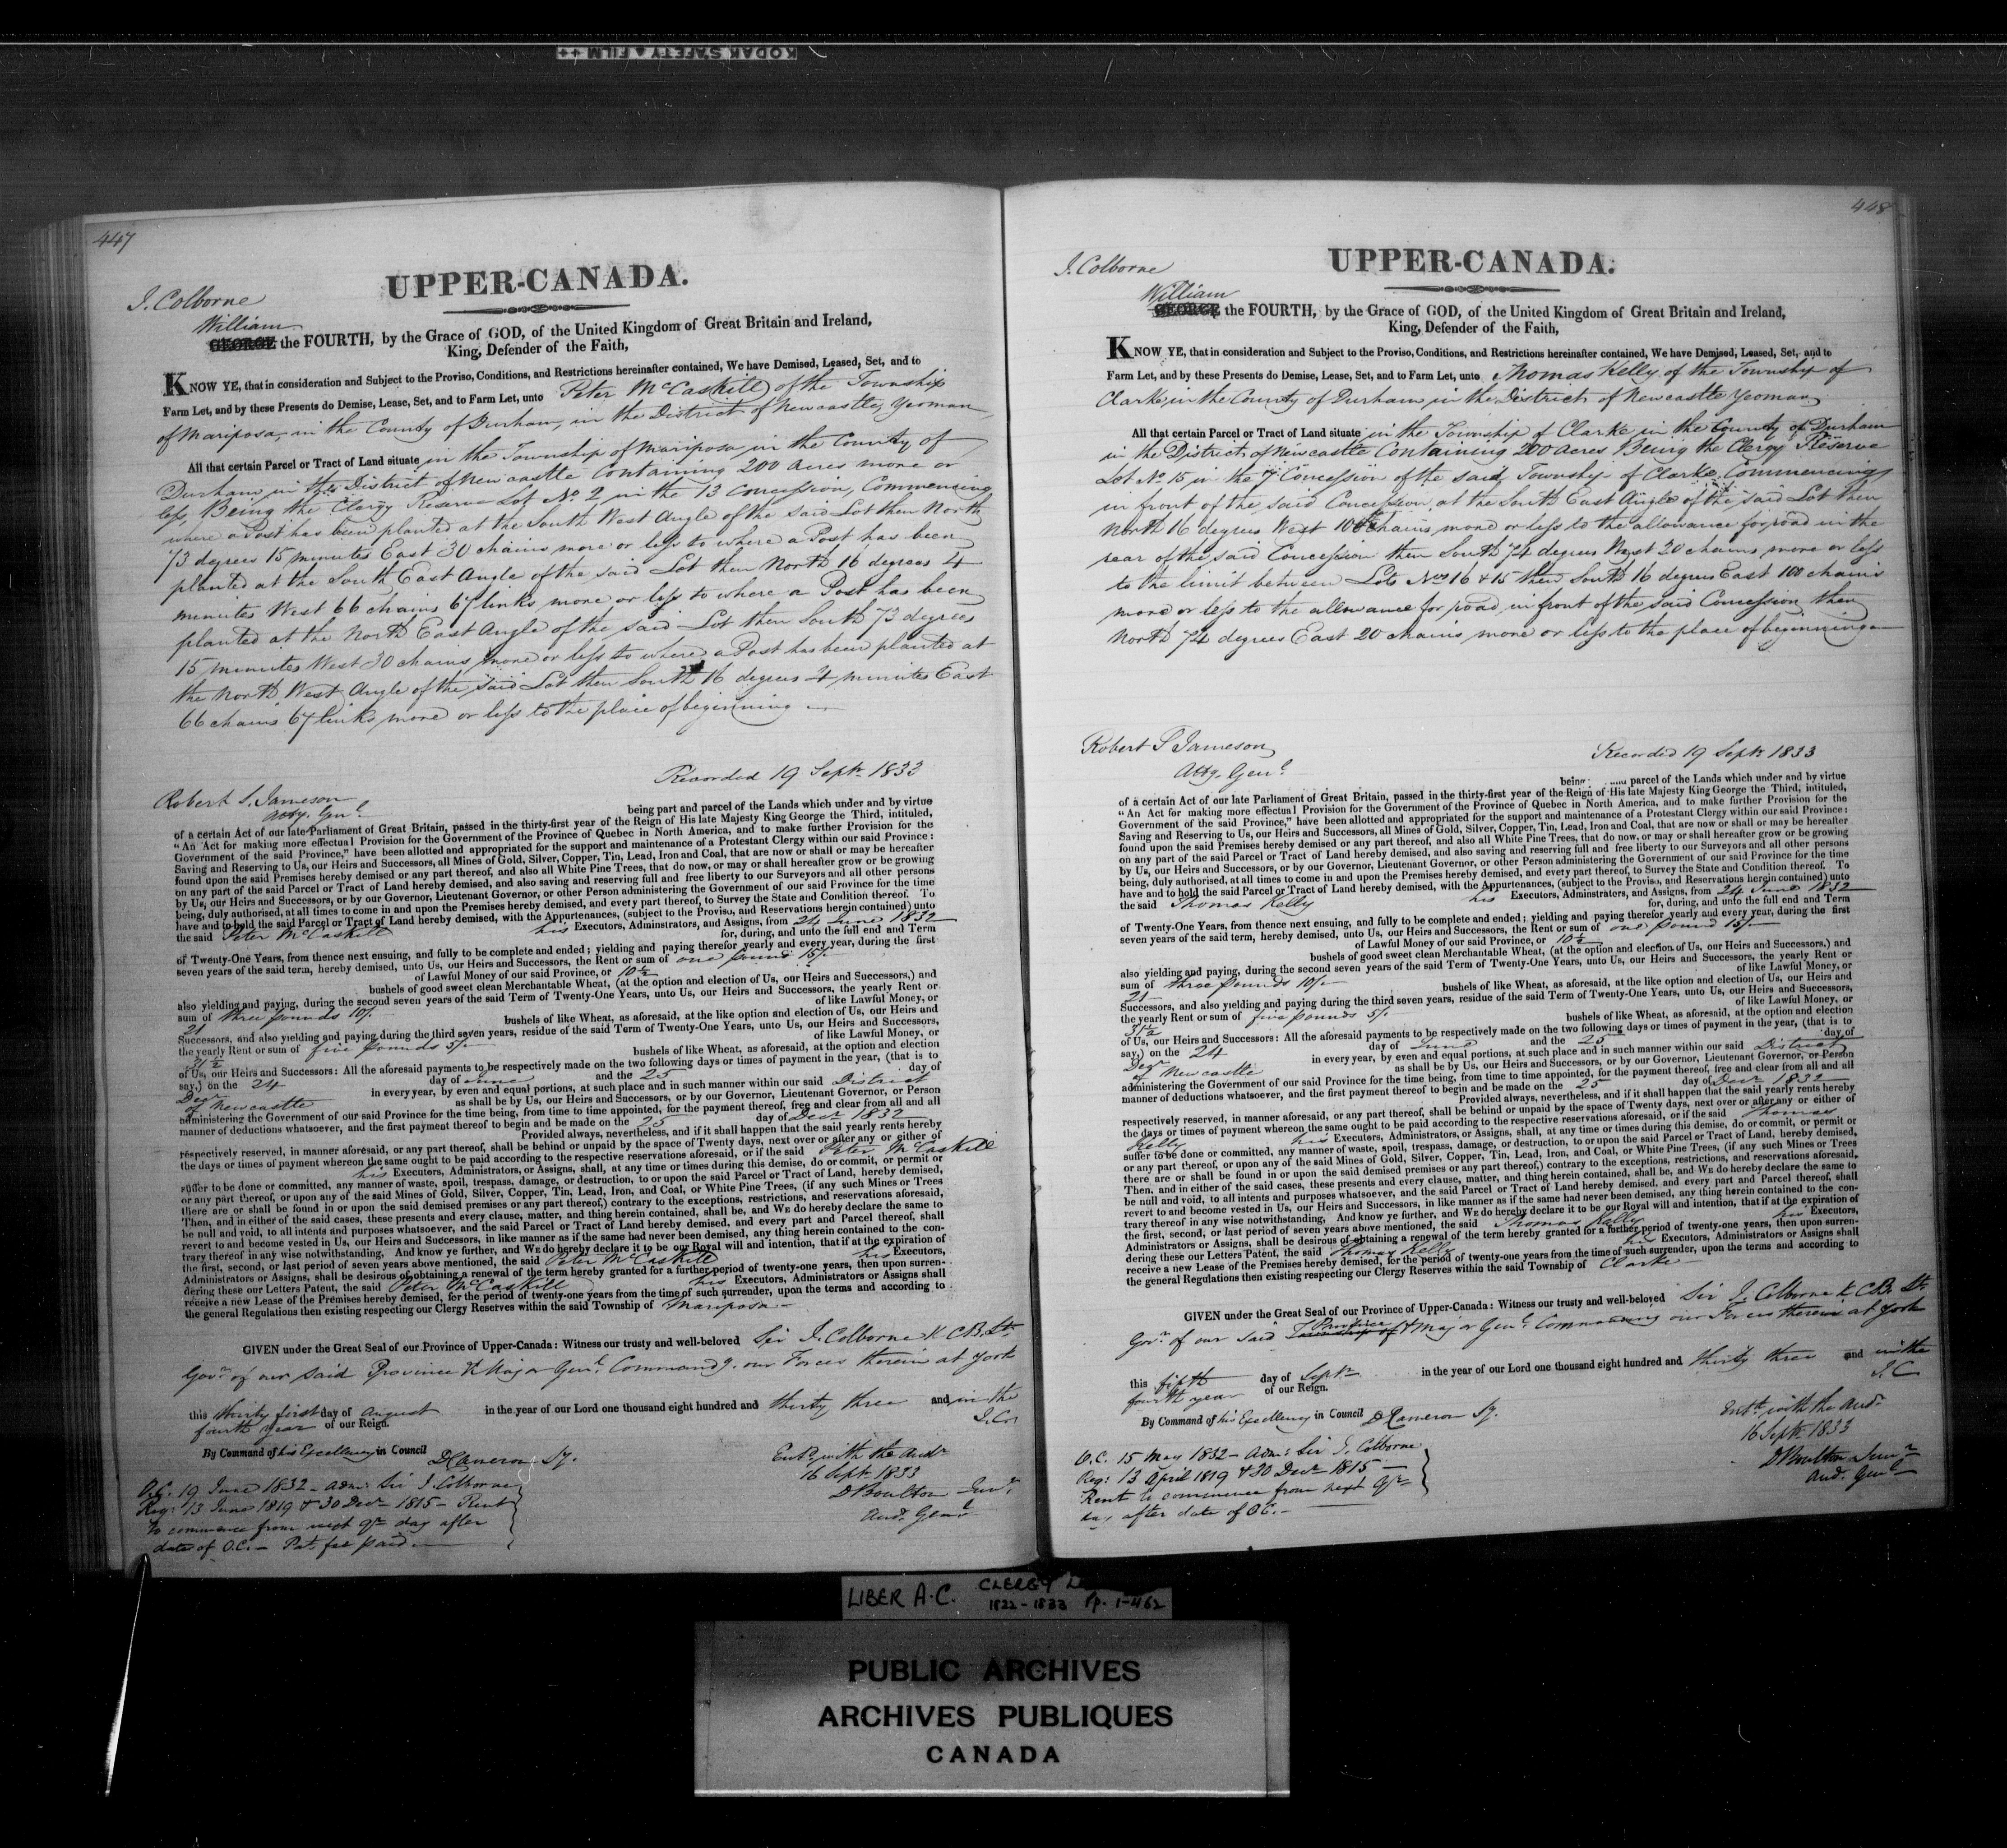 KODAK SAFETY FILM ++
447
UPPER-CANADA.
J. Colborne
William
GEORGE the FOURTH, by the Grace of GOD, of the United Kingdom of Great Britain and Ireland,
King, Defender of the Faith,
KNOW YE, that in consideration and Subject to the Proviso, Conditions, and Restrictions hereinafter contained, We have Demised, Leased, Set, and to
Farm Let, and by these Presents do Demise, Lease, Set, and to Farm Let, unto Peter McCaskill of the Township
of Mariposa, in the County of Durham, in the District of Newcastle, Yeoman,
All that certain Parcel or Tract of Land situate in the Township of Mariposa in the County of
Durham in the District of Newcastle Containing 200 acres more or
less, Being the Clergy Reserve Lot No 2 in the 13 Concession, Commencing
where a Post has been planted at the South West Angle of the said Lot then North
73 degrees 15 minutes East 30 chains more or less to where a Post has been
planted at the South East Angle of the said Lot then North 16 degrees 4
minutes West 66 chains 67 links more or less to where a Post has been
planted at the North East Angle of the said Lot then South 73 degrees
15 minutes West 30 chains more or less to where a Post has been planted at
the North West Angle of the said Lot then South 16 degrees 4 minutes East
66 chains 67 links more or less to the place of beginning
Recorded 19 Septr 1833
Robert S. Jameson
Atty. Genl
being part and parcel of the Lands which under and by virtue
of a certain Act of our late Parliament of Great Britain, passed in the thirty-first year of the Reign of His late Majesty King George the Third, intituled,
"An Act for making more effectual Provision for the Government of the Province of Quebec in North America, and to make further Provision for the
Government of the said Province," have been allotted and appropriated for the support and maintenance of a Protestant Clergy within our said Province:
Saving and Reserving to Us, our Heirs and Successors, all Mines of Gold, Silver, Copper, Tin, Lead, Iron and Coal, that are now or shall or may be hereafter
found upon the said Premises hereby demised or any part thereof, and also all White Pine Trees, that do now, or may or shall hereafter grow or be growing
on any part of the said Parcel or Tract of Land hereby demised, and also saving and reserving full and free liberty to our Surveyors and all other persons
by Us, our Heirs and Successors, or by our Governor, Lieutenant Governor, or other Person administering the Government of our said Province for the time
being, duly authorised, at all times to come in and upon the Premises hereby demised, and every part thereof, to Survey the State and Condition thereof. To
have and to hold the said Parcel or Tract of Land hereby demised, with the Appurtenances, (subject to the Proviso, and Reservations herein contained) unto
the said Peter McCaskill his Executors, Adminstrators, and Assigns, from 24 June 1832
for, during, and unto the full end and Term
of Twenty-One Years, from thence next ensuing, and fully to be complete and ended; yielding and paying therefor yearly and every year, during the first
seven years of the said term, hereby demised, unto Us, our Heirs and Successors, the Rent or sum of one pound 15/-
of Lawful Money of our said Province, or 10½
bushels of good sweet clean Merchantable Wheat, (at the option and election of Us, our Heirs and Successors,) and
also yielding and paying, during the second seven years of the said Term of Twenty-One Years, unto Us, our Heirs and Successors, the yearly Rent or
sum of three pounds 10/- of like Lawful Money, or
21 bushels of like Wheat, as aforesaid, at the like option and election of Us, our Heirs and
Successors, and also yielding and paying during the third seven years, residue of the said Term of Twenty-One Years, unto Us, our Heirs and Successors,
the yearly Rent or sum of five pounds 5/- of like Lawful Money, or
31½ bushels of like Wheat, as aforesaid, at the option and election
of Us, our Heirs and Successors: All the aforesaid payments to be respectively made on the two following days or times of payment in the year, (that is to
say,) on the 24 day of June and the 25 day of
Decr in every year, by even and equal portions, at such place and in such manner within our said District
of Newcastle as shall be by Us, our Heirs and Successors, or by our Governor, Lieutenant Governor, or Person
administering the Government of our said Province for the time being, from time to time appointed, for the payment thereof, free and clear from all and all
manner of deductions whatsoever, and the first payment thereof to begin and be made on the 25 day of Decr 1832
Provided always, nevertheless, and if it shall happen that the said yearly rents hereby
respectively reserved, in manner aforesaid, or any part thereof, shall be behind or unpaid by the space of Twenty days, next over or after any or either of
the days or times of payment whereon the same ought to be paid according to the respective reservations aforesaid, or if the said Peter McCaskill
his Executors, Administrators, or Assigns, shall, at any time or times during this demise, do or commit, or permit or
suffer to be done or committed, any manner of waste, spoil, trespass, damage, or destruction, to or upon the said Parcel or Tract of Land, hereby demised,
or any part thereof, or upon any of the said Mines of Gold, Silver, Copper, Tin, Lead, Iron, and Coal, or White Pine Trees, (if any such Mines or Trees
there are or shall be found in or upon the said demised premises or any part thereof,) contrary to the exceptions, restrictions, and reservations aforesaid,
Then, and in either of the said cases, these presents and every clause, matter, and thing herein contained, shall be, and WE do hereby declare the same to
be null and void, to all intents and purposes whatsoever, and the said Parcel or Tract of Land hereby demised, and every part and Parcel thereof, shall
revert to and become vested in Us, our Heirs and Successors, in like manner as if the same had never been demised, any thing herein contained to the con-
trary thereof in any wise notwithstanding. And know ye further, and WE do hereby declare it to be our Royal will and intention, that if at the expiration of
the first, second, or last period of seven years above mentioned, the said Peter McCaskill his Executors,
Administrators or Assigns, shall be desirous of obtaining a renewal of the term hereby granted for a further period of twenty-one years, then upon surren-
dering these our Letters Patent, the said Peter McCaskill his Executors, Administrators or Assigns shall
receive a new Lease of the Premises hereby demised, for the period of twenty-one years from the time of such surrender, upon the terms and according to
the general Regulations then existing respecting our Clergy Reserves within the said Township of Mariposa -
GIVEN under the Great Seal of our Province of Upper-Canada: Witness our trusty and well-beloved Sir J. Colborne K.C.B. Lt.
Govr of our said Province & Major Genl Commandg. our Forces therein at York
this thirty first day of August in the year of our Lord one thousand eight hundred and thirty three and in the
fourth year of our Reign. J.C.
By Command of his Excellency in Council D Cameron Sy.
Entd with the Audr
16 Septr 1833
D Boulton Junr.
Audr Genl
O.C. 19 June 1832 - Adm: Sir J. Colborne
Reg: 13 June 1819 & 30 Decr 1815 - Rent
to commence from next qr day after
date of O.C. - Pat. fee paid. -
448
UPPER-CANADA.
J. Colborne
William
GEORGE the FOURTH, by the Grace of GOD, of the United Kingdom of Great Britain and Ireland,
King, Defender of the Faith,
KNOW YE, that in consideration and Subject to the Proviso, Conditions, and Restrictions hereinafter contained, We have Demised, Leased, Set, and to
Farm Let, and by these Presents do Demise, Lease, Set, and to Farm Let, unto Thomas Kelly of the Township of
Clarke, in the County of Durham in the District of Newcastle Yeoman
All that certain Parcel or Tract of Land situate in the Township of Clarke in the County of Durham
in the District of Newcastle Containing 200 acres Being the Clergy Reserve
Lot No 15 in the 7 Concession of the said Township of Clarke, Commencing
in front of the said Concession at the South East Angle of the said Lot then
North 16 degrees West 100 chains more or less to the allowance for road in the
rear of the said Concession then South 74 degrees West 20 chains more or less
to the limit between Lots Nos 16 & 15 then South 16 degrees East 100 chains
more or less to the allowance for road in front of the said Concession then
North 74 degrees East 20 chains more or less to the place of beginning
Robert S Jameson
Atty. Genl
Recorded 19 Septr 1833
being and parcel of the Lands which under and by virtue
of a certain Act of our late Parliament of Great Britain, passed in the thirty-first year of the Reign of His late Majesty King George the Third, intituled,
"An Act for making more effectual Provision for the Government of the Province of Quebec in North America, and to make further Provision for the
Government of the said Province," have been allotted and appropriated for the support and maintenance of a Protestant Clergy within our said Province:
Saving and Reserving to Us, our Heirs and Successors, all Mines of Gold, Silver, Copper, Tin, Lead, Iron and Coal, that are now or shall or may be hereafter
found upon the said Premises hereby demised or any part thereof, and also all White Pine Trees, that do now, or may or shall hereafter grow or be growing
on any part of the said Parcel or Tract of Land hereby demised, and also saving and reserving full and free liberty to our Surveyors and all other persons
by Us, our Heirs and Successors, or by our Governor, Lieutenant Governor, or other Person administering the Government of our said Province for the time
being, duly authorised, at all times to come in and upon the Premises hereby demised, and every part thereof, to Survey the State and Condition thereof. To
have and to hold the said Parcel or Tract of Land hereby demised, with the Appurtenances, (subject to the Proviso, and Reservations herein contained) unto
the said Thomas Kelly his Executors, Adminstrators, and Assigns, from 24 June 1832
for, during, and unto the full end and Term
of Twenty-One Years, from thence next ensuing, and fully to be complete and ended; yielding and paying therefor yearly and every year, during the first
seven years of the said term, hereby demised, unto Us, our Heirs and Successors, the Rent or sum of one pound 15/-
of Lawful Money of our said Province, or 10½
bushels of good sweet clean Merchantable Wheat, (at the option and election of Us, our Heirs and Successors,) and
also yielding and paying, during the second seven years of the said Term of Twenty-One Years, unto Us, our Heirs and Successors, the yearly Rent or
sum of three pounds 10/- of like Lawful Money, or
21 bushels of like Wheat, as aforesaid, at the like option and election of Us, our Heirs and
Successors, and also yielding and paying during the third seven years, residue of the said Term of Twenty-One Years, unto Us, our Heirs and Successors,
the yearly Rent or sum of five pounds 5/- of like Lawful Money, or
31½ bushels of like Wheat, as aforesaid, at the option and election
of Us, our Heirs and Successors: All the aforesaid payments to be respectively made on the two following days or times of payment in the year, (that is to
say,) on the 24 day of June and the 25 day of
Decr in every year, by even and equal portions, at such place and in such manner within our said District
of Newcastle as shall be by Us, our Heirs and Successors, or by our Governor, Lieutenant Governor, or Person
administering the Government of our said Province for the time being, from time to time appointed, for the payment thereof, free and clear from all and all
manner of deductions whatsoever, and the first payment thereof to begin and be made on the 25 day of Decr 1832
Provided always, nevertheless, and if it shall happen that the said yearly rents hereby
respectively reserved, in manner aforesaid, or any part thereof, shall be behind or unpaid by the space of Twenty days, next over or after any or either of
the days or times of payment whereon the same ought to be paid according to the respective reservations aforesaid, or if the said Thomas
Kelly his Executors, Administrators, or Assigns, shall, at any time or times during this demise, do or commit, or permit or
suffer to be done or committed, any manner of waste, spoil, trespass, damage, or destruction, to or upon the said Parcel or Tract of Land, hereby demised,
or any part thereof, or upon any of the said Mines of Gold, Silver, Copper, Tin, Lead, Iron, and Coal, or White Pine Trees, (if any such Mines or Trees
there are or shall be found in or upon the said demised premises or any part thereof,) contrary to the exceptions, restrictions, and reservations aforesaid,
Then, and in either of the said cases, these presents and every clause, matter, and thing herein contained, shall be, and WE do hereby declare the same to
be null and void, to all intents and purposes whatsoever, and the said Parcel or Tract of Land hereby demised, and every part and Parcel thereof, shall
revert to and become vested in Us, our Heirs and Successors, in like manner as if the same had never been demised, any thing herein contained to the con-
trary thereof in any wise notwithstanding. And know ye further, and WE do hereby declare it to be our Royal will and intention, that if at the expiration of
the first, second, or last period of seven years above mentioned, the said Thomas Kelly his Executors,
Administrators or Assigns, shall be desirous of obtaining a renewal of the term hereby granted for a further period of twenty-one years, then upon surren-
dering these our Letters Patent, the said Thomas Kelly his Executors, Administrators or Assigns shall
receive a new Lease of the Premises hereby demised, for the period of twenty-one years from the time of such surrender, upon the terms and according to
the general Regulations then existing respecting our Clergy Reserves within the said Township of Clarke -
GIVEN under the Great Seal of our Province of Upper-Canada: Witness our trusty and well-beloved Sir J. Colborne K.C.B. Lt.
Province
Govr of our said Township of & Major Genl Commanding our Forces therein at York
this fifth day of Septr in the year of our Lord one thousand eight hundred and thirty three and in the
fourth year of our Reign. J.C
By Command of his Excellency in Council D Cameron Sy.
Entd with the Audr
16 Septr 1833
D Boulton Junr
Audr Genl
O.C. 15 May 1832 - Adm: Sir J. Colborne
Reg: 13 April 1819 & 30 Decr 1815 -
Rent to commence from next qr
day after date of OC. -
LIBER A.C. CLERGY
1822-1833 Pp. 1-462
PUBLIC ARCHIVES
ARCHIVES PUBLIQUES
CANADA